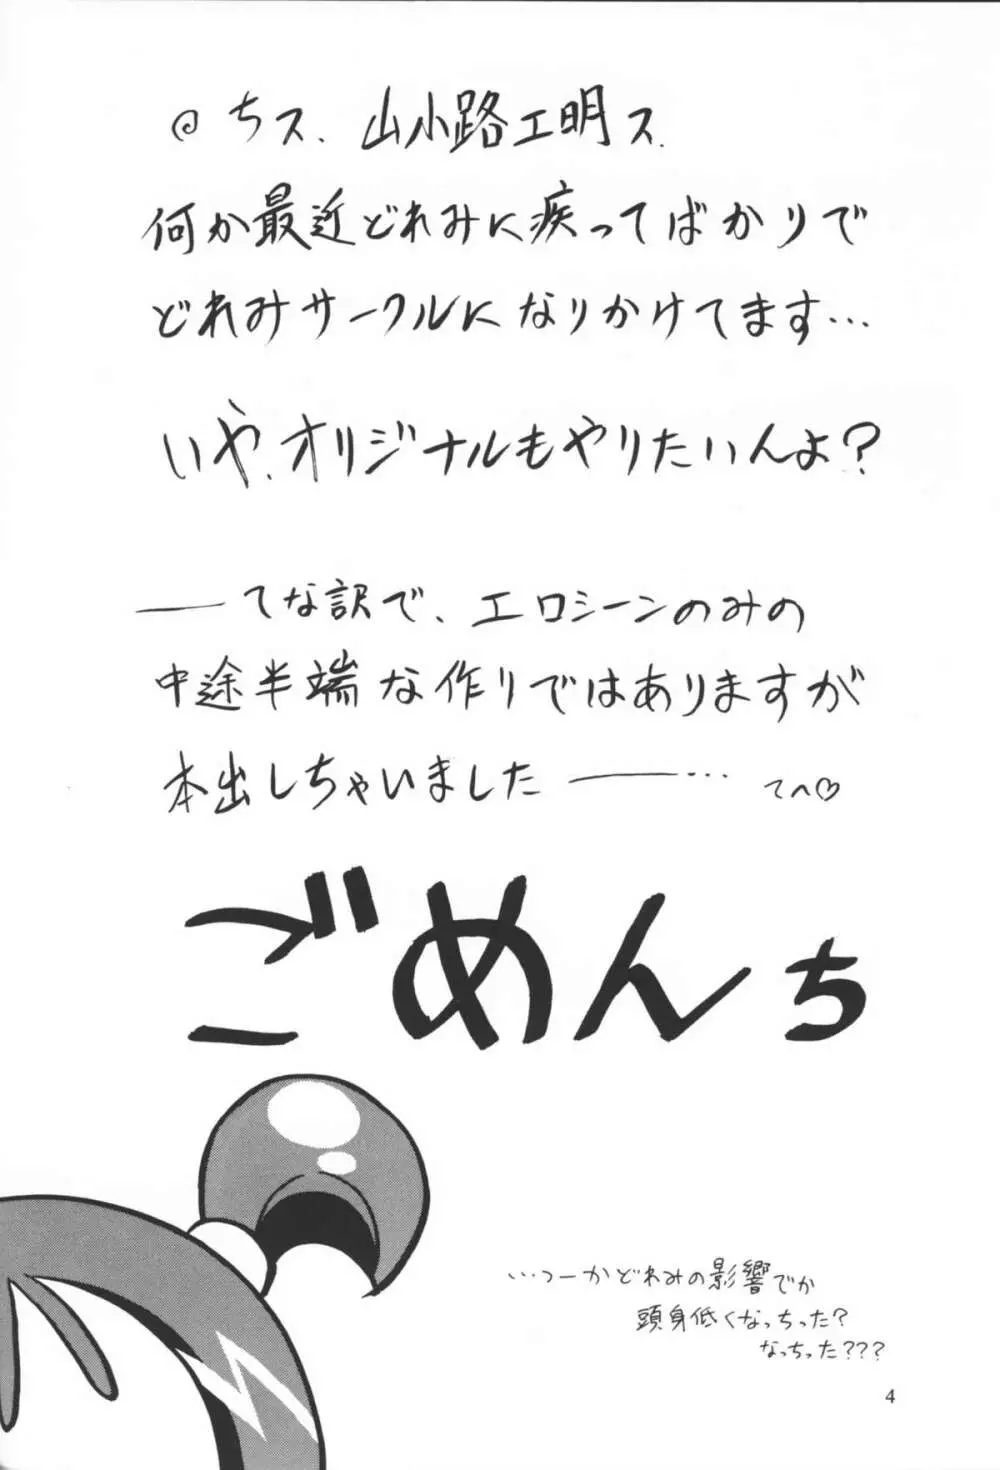 ちス、山小路工明ス.
何か最近どれみに疾ってばかりで
どれみサークルになりかけてます…
いや、オリジナルもやりたいんよ?
——てな訳で、エロシーンのみの
中途半端な作りではありますが
本出しちゃいました——… てへ♡
ごめんち
…つーかどれみの影響でか
頭身低くなっちった?
なっちった???
4